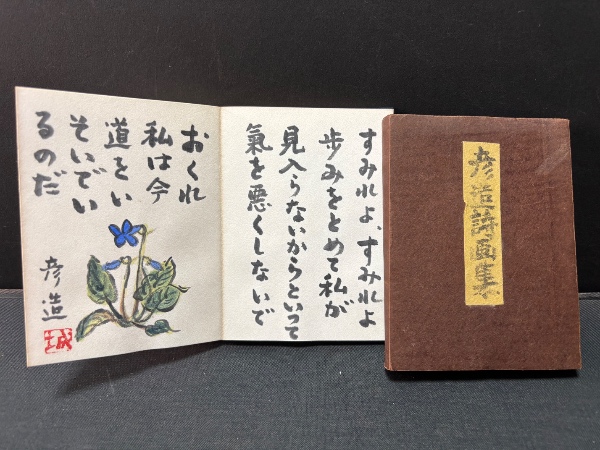 すみれよ、すみれよ
歩みをとめて私が
見入らないからといって
氣を悪くしないで
おくれ
私は今
道をい
そいでい
るのだ
彦造
城
彦造詩画集